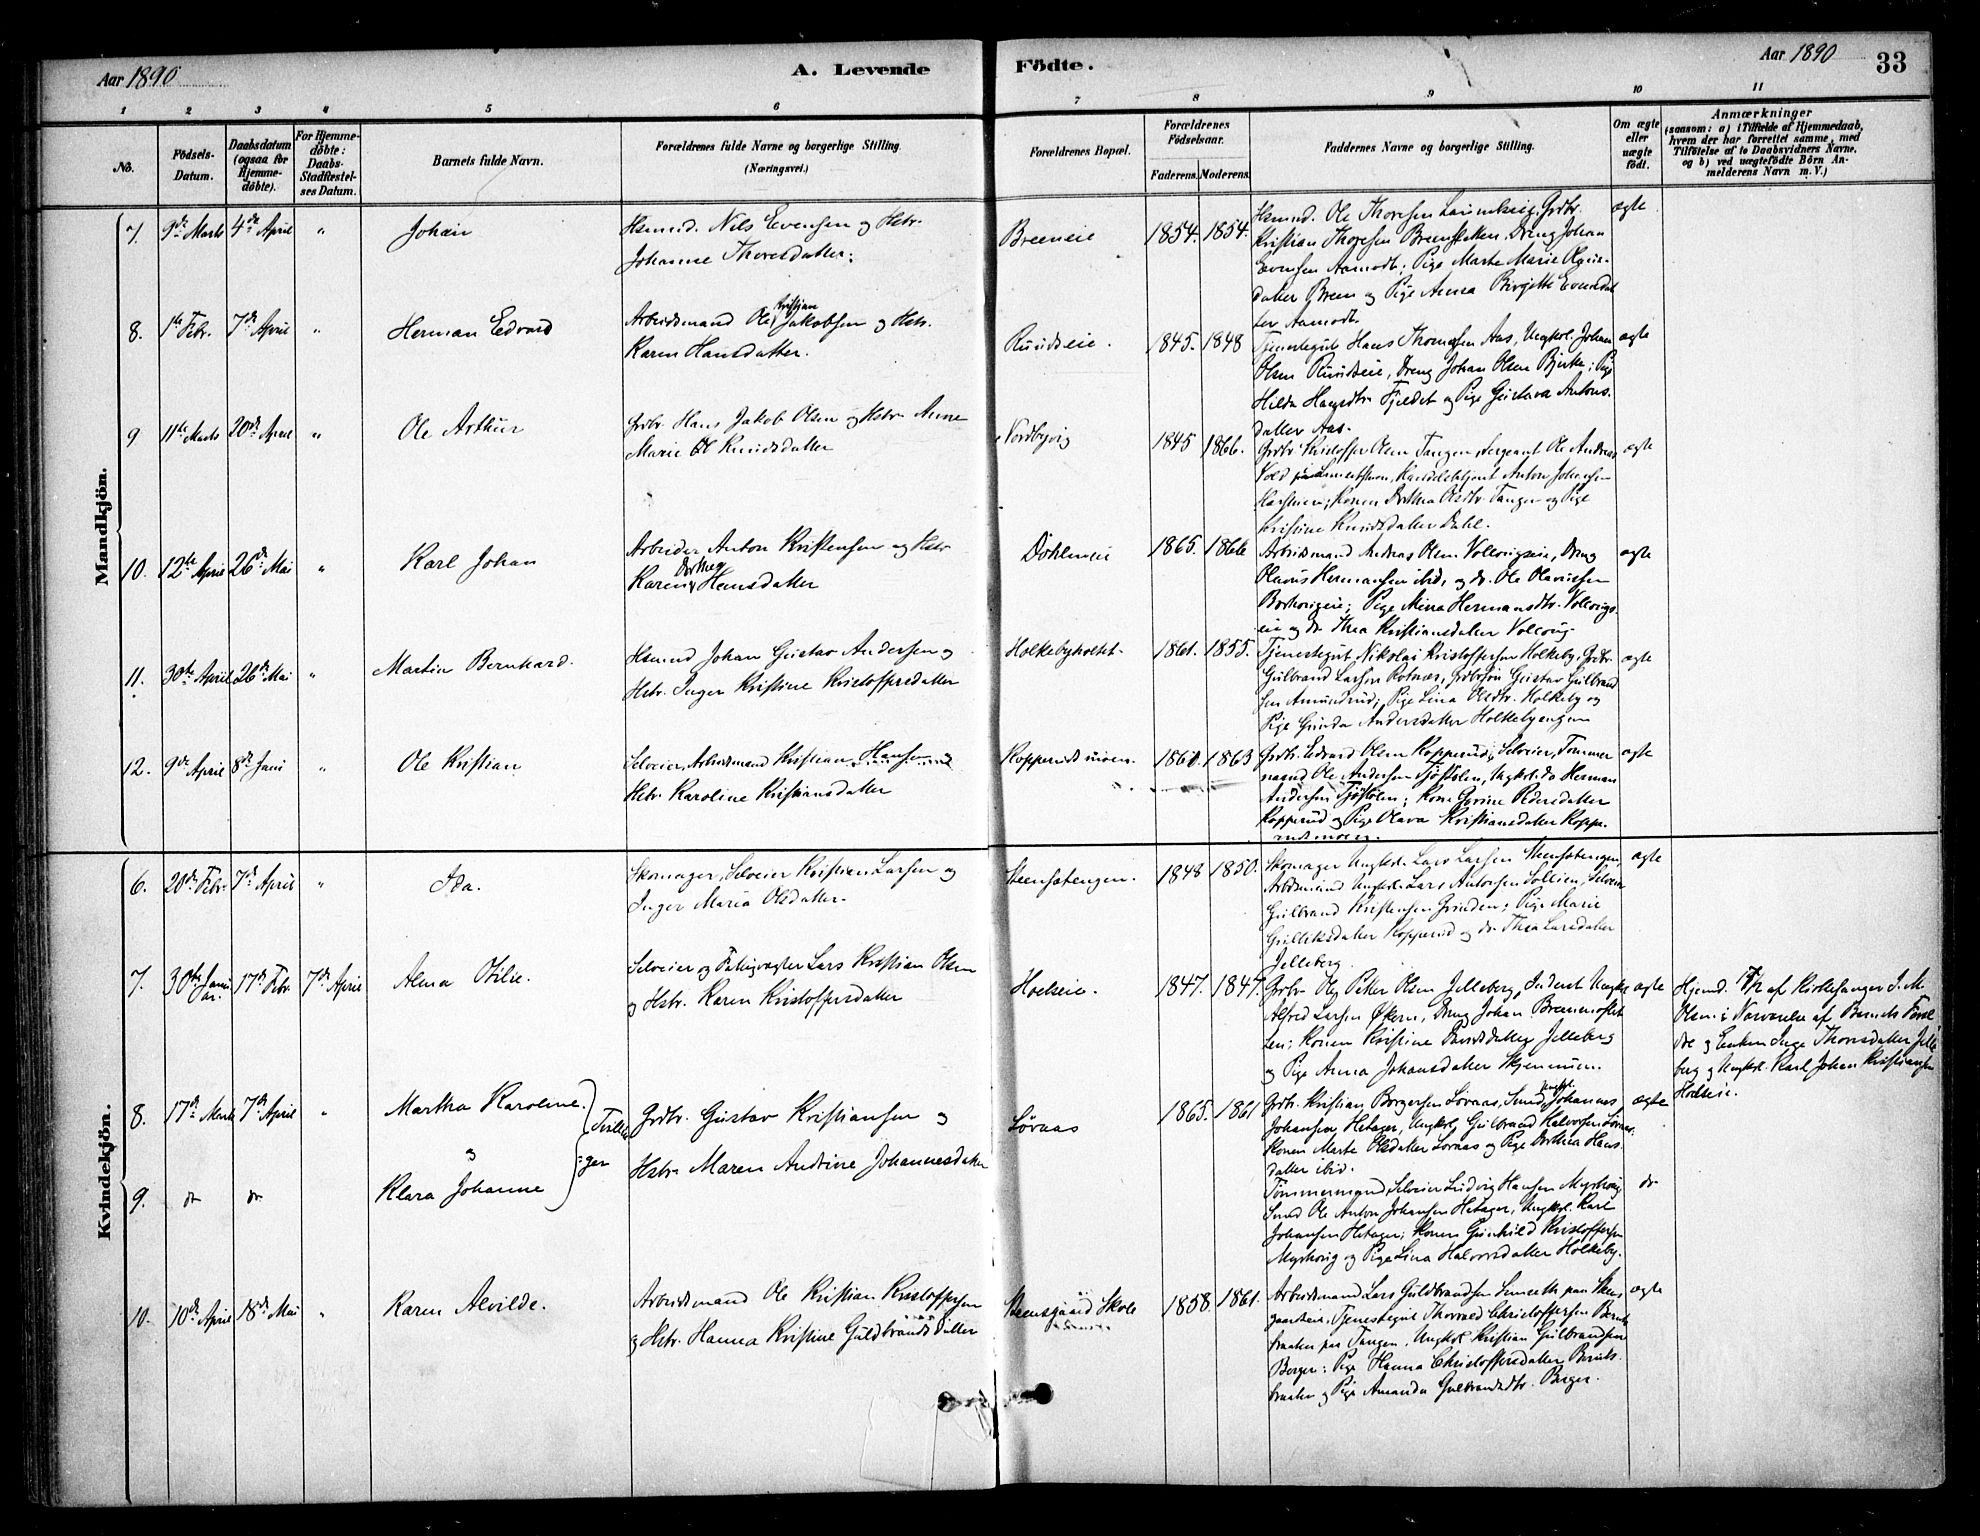 Aar 1890
A. Levende
Födte.
Aar 1890
33
1 2 3 4 5 6 7 8 9 10 11
No.
Födsels-
Datum.
Daabsdatum
(ogsaa for
Hjemme-
döbte).
For Hjemme-
döbte:
Daabs-
Stadfæstel-
ses Datum.
Barnets fulde Navn.
Forældrenes fulde Navne og borgerlige Stilling.
(Næringsvei.)
Forældrenes Bopæl.
Forældrenes
Födselsaar.
Faderens. Moderens.
Faddernes Navne og borgerlige Stilling.
Om ægte
eller
uægte
født.
Anmærkninger
(saasom: a) i Tilfælde af Hjemmedaab,
hvem der har forrettet samme, med
Tilföielse af to Daabsvidners Navne,
og b) ved uægtefödte Börn An-
melderens Navn m. V.)
Mandkjön.
7. 9de Marts 4de April " Johan
Hsmnd. Nils Evensen og Hstr.
Johanne Thoresdatter.
Breeneie 1854. 1854.
Hsmnd. Ole Thoresen Grdbr.
Kristian Thoresen Dreng Johan
Evensen Aamodt; Pige Marte Marie
datter Breen og Pige Anna Birgitte Evensdat
ter Aamodt.
ægte
8. 1ste Febr. 7de April " Herman Edvard
Arbeidsmand Ole Kristian Jakobsen og Hstr.
Karen Hansdatter.
Ruudseie. 1845. 1848
Tjenestegut Hans Thomesen Aas, Ungkl. Johan
Olsen Ruudseie, Dreng Johan Olsen Bjerke; Pige
Hilda Hansdtr. Fjeldet og Pige Gustava Antons-
datter Aas.
ægte
9 11te Marts 20de April " Ole Arthur
Grdbr. Hans Jakob Olsen og Hstr. Anne
Marie Knudsdatter
Nordbyvig 1845 1866.
Grdbr. Kristoffer Olsen Tangen, Sergeant Ole Andreas
Vold Handelsbetjent Anton Johansen
Konen Dorthea Olsdtr. Tangen og Pige
Kristine Knudsdatter Dahl.
ægte
10. 12te April 26de Mai " Karl Johan
Arbeider Anton Kristensen og Hstr.
Karen Dorthea Hansdatter
Döhleneie 1865. 1866
Arbeidsmand Andreas Olsen Dreng
Olaves Hermansen ibid, og do. Ole Olavesen
Pige Mina Hermansdtr.
eie og do. Thea Kristiansdatter
ægte
11. 30te April 26de Mai " Martin Bernhard.
Hsmnd Johan Gustav Andersen og
Hstr. Inger Kristine Kristoffersdatter
Holkebyholtet 1861. 1855.
Tjenestegut Nikolai Kristoffersen Holkeby, Grdbr.
Gulbrand Larsen Rotnæs, Grdbrsön Gustav Gulbrand
sen Amundrud; Pige Lina Olsdtr. Holkeby og
Pige Gunda Andersdatter Holkebyengen
ægte
12. 9de April 8de Juni " Ole Kristian
Selveier, Arbeidsmand Kristian Hansen og
Hstr. Karoline Kristiansdatter
Kopperudmoen. 1860. 1863
Grdbr. Edvard Olsen Kopperud, Selveier, Tömmer
mand Ole Andersen Tjöstölen, Ungkl. do Herman
Andersen Tjöstölen; Kone Gorine Pedersdatter
Kopperud og Pige Olava Kristiansdatter Koppe-
rudmoen.
ægte
Kvindekjön.
6. 20de Febr. 7de April " Ida.
Skomager, Selveier Kristian Larsen og
Inger Maria Olsdatter.
Steensstengen. 1848 1850.
Skomager Ungkl. Lars Larsen Steensstengen,
Arbdsmand Ungkl. Lars Antonsen Sollien, Selveier
Gulbrand Kristensen Grinden; Pige Marie
Gulliksdatter Kopperud og do. Thea Larsdatter
Jelleberg
ægte
7. 30te Janu
ar. 17de Febr. 7de April Alma Otilie.
Selveier og Fattigvægter Lars Kristian Olsen
og Hstr. Karen Kristoffersdatter
Hoelseie. 1847. 1847.
Grdbr. Ole Petter Olsen Jelleberg, Inderst Ungkl
Alfred Larsen Økern, Dreng Johan
len; Konen Kristine Jelleberg
og Pige Anna Johansdatter Skjennum.
ægte
Hjemd. 17/2 af Kirkesanger J. M.
Olsen i Nærværelse af Barnets Foræl
dre og Enken Inge Thoresdatter Jelle
berg og Ungkl. Karl Johan Kristiansen
Hoelseie.
8. 17de Marts 7de April " Martha Karoline.
og
Tvillin
ger
Grdbr. Gustav Kristiansen og
Hstr. Maren Andrine Johannesdatter
Løvaas 1865. 1861
Grdbr. Kristian Borgersen Lövaas, Smed Ungkl. Johannes
Johansen Hetager, Ungkl. Gulbrand Halvorsen Lövaas.
Konen Marte Olsdatter Lövaas og Pige Dorthea Hans
datter ibid.
ægte
9. do do Klara Johanne
Tömmermand, Selveier Ludvig Hansen Myrhaug
Smed Ole Anton Johansen Hetager, Ungkl. Karl
Johansen Hetager; Konen Gunhild Kristoffersen
Myrhaug og Pige Lina Halvorsdatter Holkeby.
do
10. 10de April 18de Mai " Karen Alvilde.
Arbeidsmand Ole Kristian Kristoffersen
og Hstr. Hanna Kristine Guldbrandsdatter
Steensgaard Skole 1858. 1861.
Arbeidsmand Lars Guldbrandsen paa Steens
gaardseie, Tjenestegut Thorvald Christoffersen
braaten paa Tangen, Ungkl. Kristian Gulbrandsen
Berger; Pige Hanna Christoffersdatter
braaten og Pige Amanda Gulbrandsdtr. Berger.
ægte